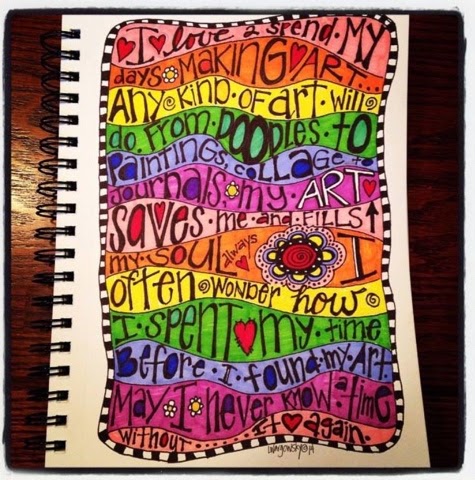 I love 2 spend My
days MAKING ART...
Any KIND OF art will
do. From DOODLES to
Paintings, collage to
journals my ART
SAVES me and FILLS
my SOUL always I
often WONDER how
I spent my time
Before I found my Art
May I never know a time
without It again.